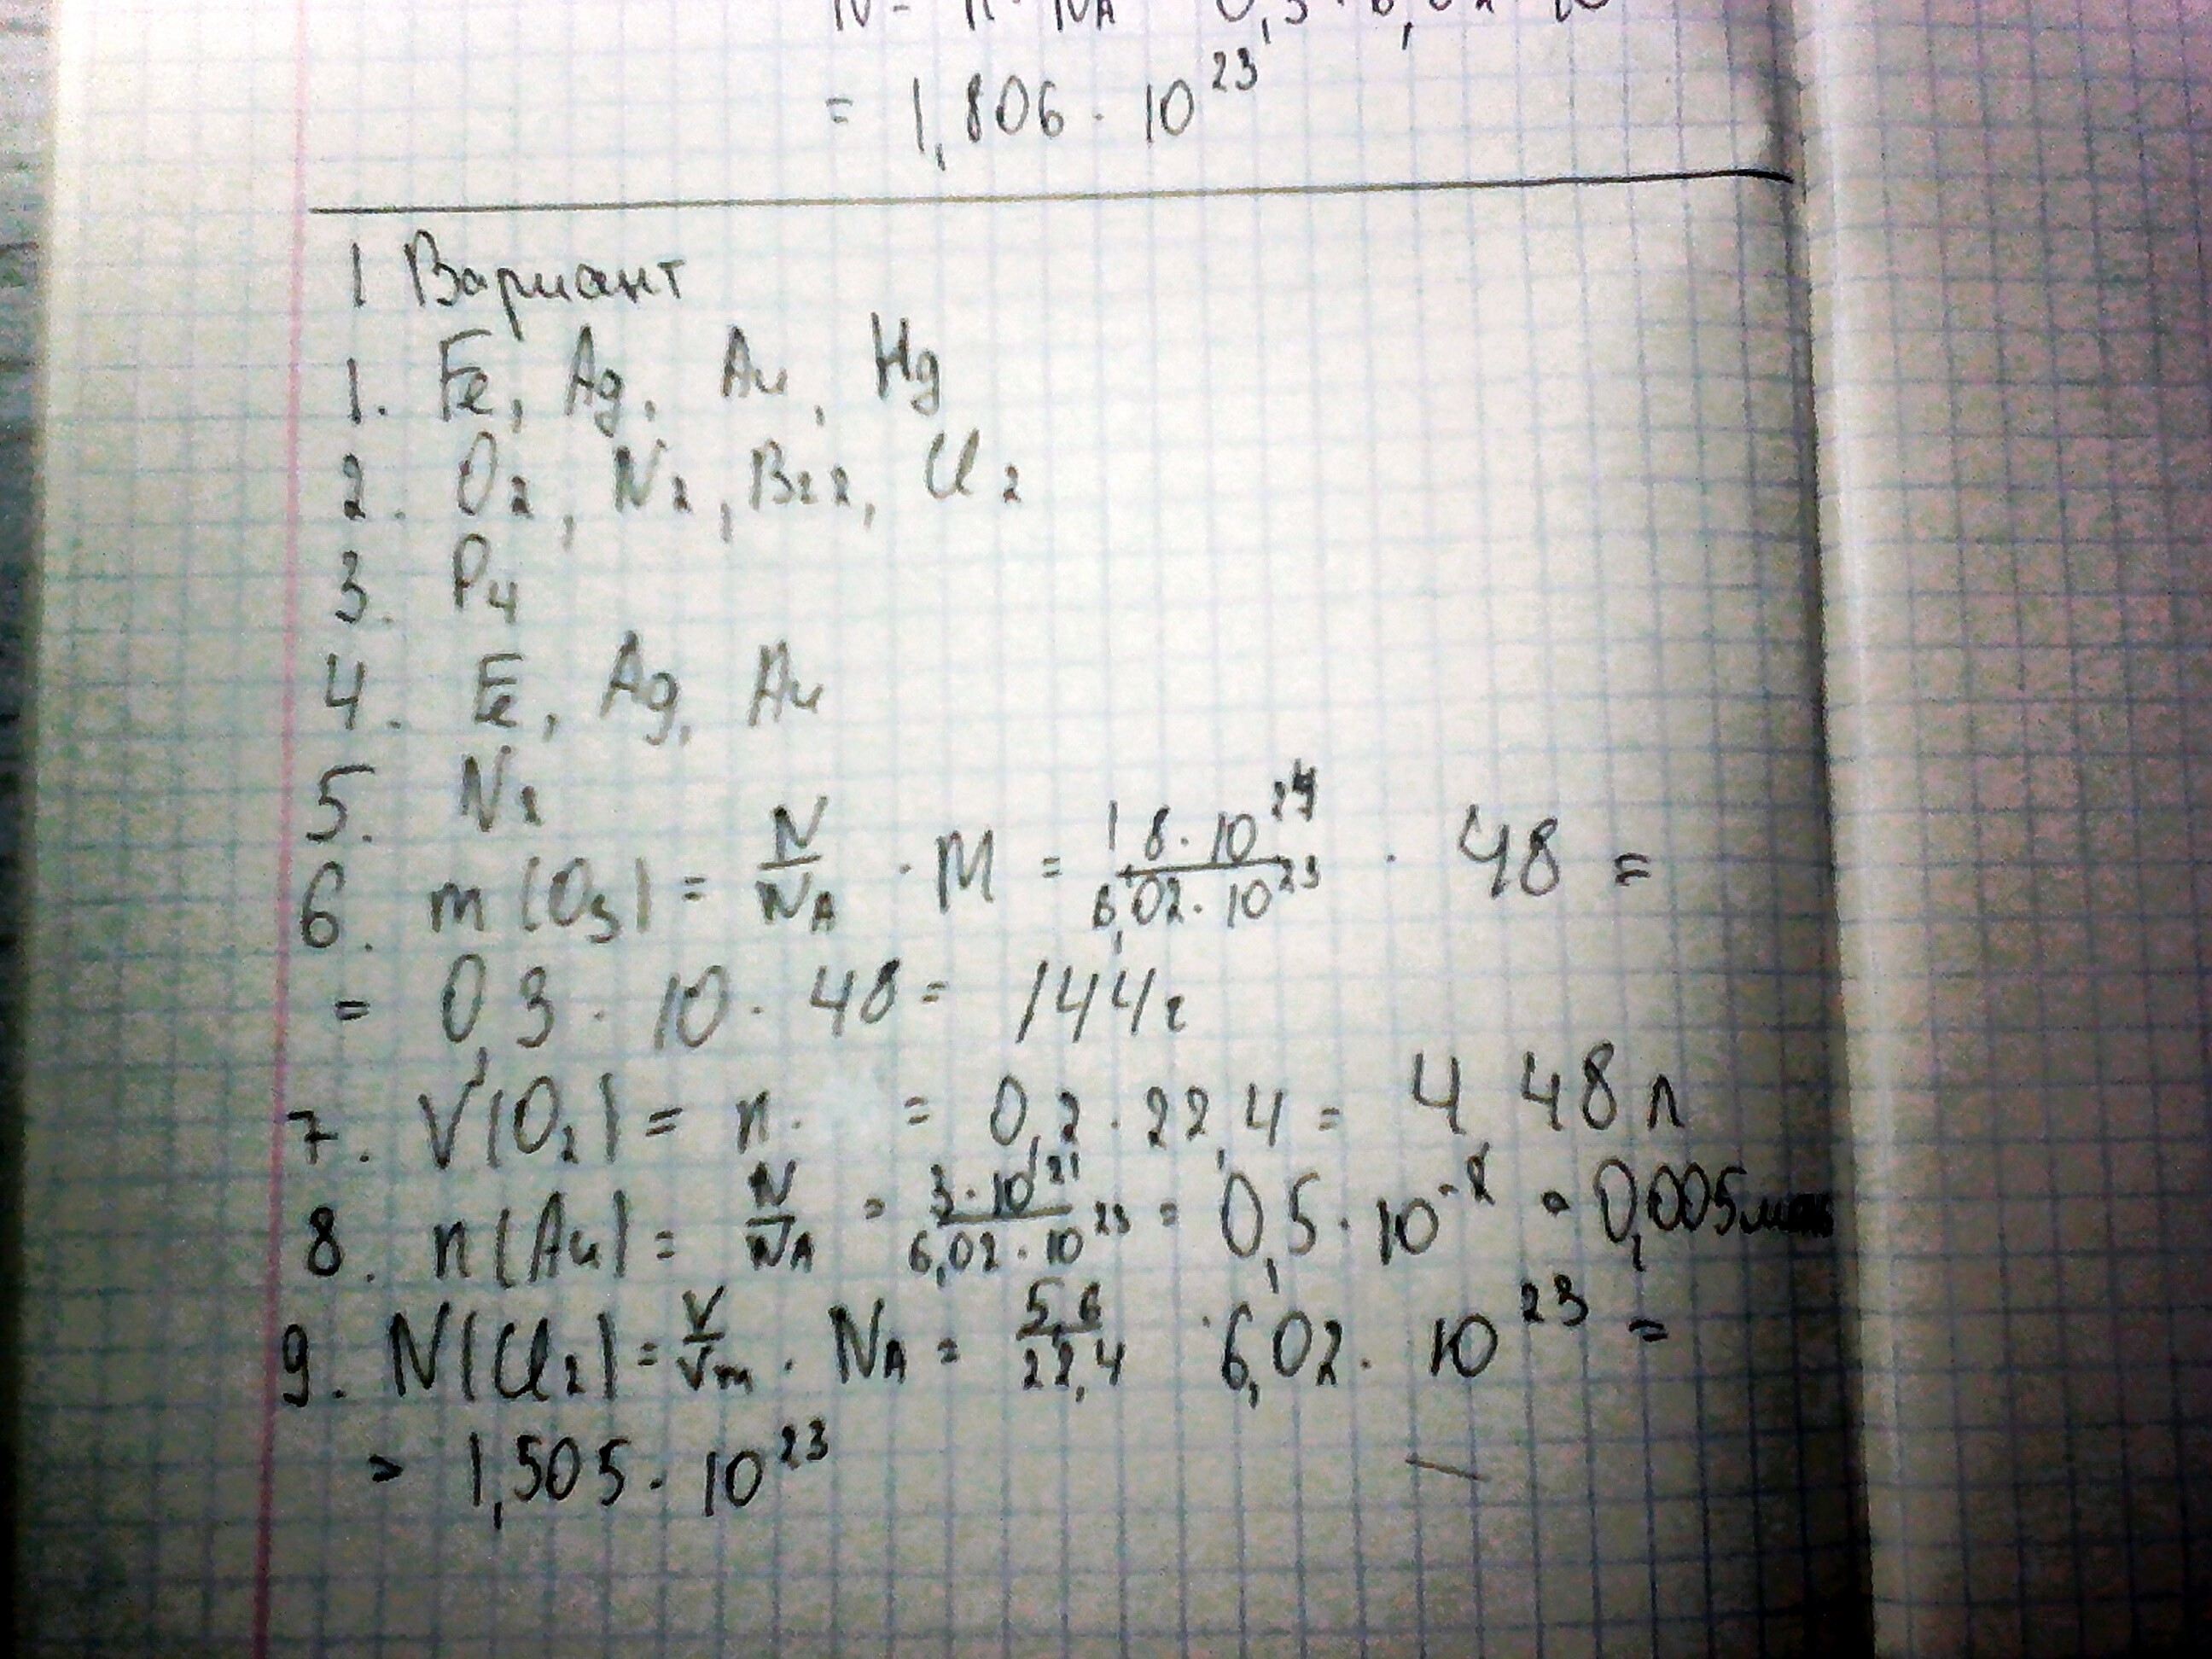 N = n · NA 0,3 · 6,02 · 10
= 1,806 · 10²³
1 Вариант
1. Fe, Ag, Au, Hg
2. O₂, N₂, Br₂, Cl₂
3. P₄
4. Fe, Ag, Au
5. N₂
6. m(O₃) = N/NA · M = 1,8 · 10²⁴/6,02 · 10²³ · 48 =
= 0,3 · 10 · 48 = 144г
7. V(O₂) = n · = 0,2 · 22,4 = 4,48 л
8. n(Au) = N/NA = 3 · 10²¹/6,02 · 10²³ = 0,5 · 10⁻² = 0,005моль
9. N(Cl₂) = V/Vm · NA = 5,6/22,4 · 6,02 · 10²³ =
= 1,505 · 10²³